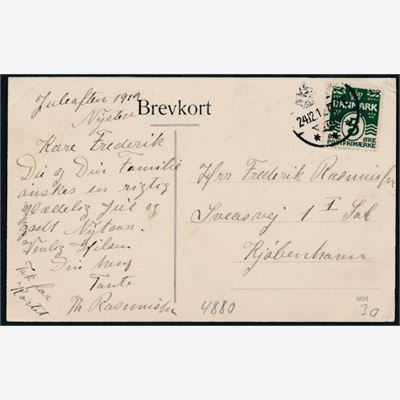 Juleaften 1912
Nysted
Brevkort
Kære Frederik
Du og Din Familie
ønskes en rigtig
Glædelig Jul og
godt Nytaar.
Venlig Hilsen
Din
Tante
Th Rasmussen
Tak for
Kortet
Hrr Frederik Rasmussen
Sveasvej 1 I Sal
Kjøbenhavn
DANMARK
5
ØRE
POSTFRIMÆRKE
24.12.1
4880
30